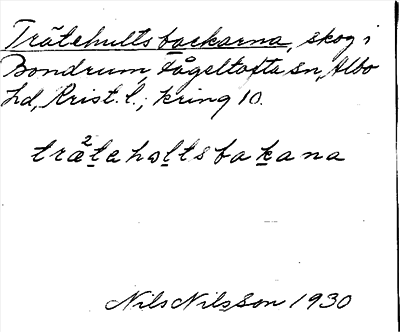 Trätehultsbackarna, skog i
Bondrum, Fågeltofta sn, Albo
hd, Krist. l.; kring 10.
træ²taholtsbakana
Nils Nilsson 1930